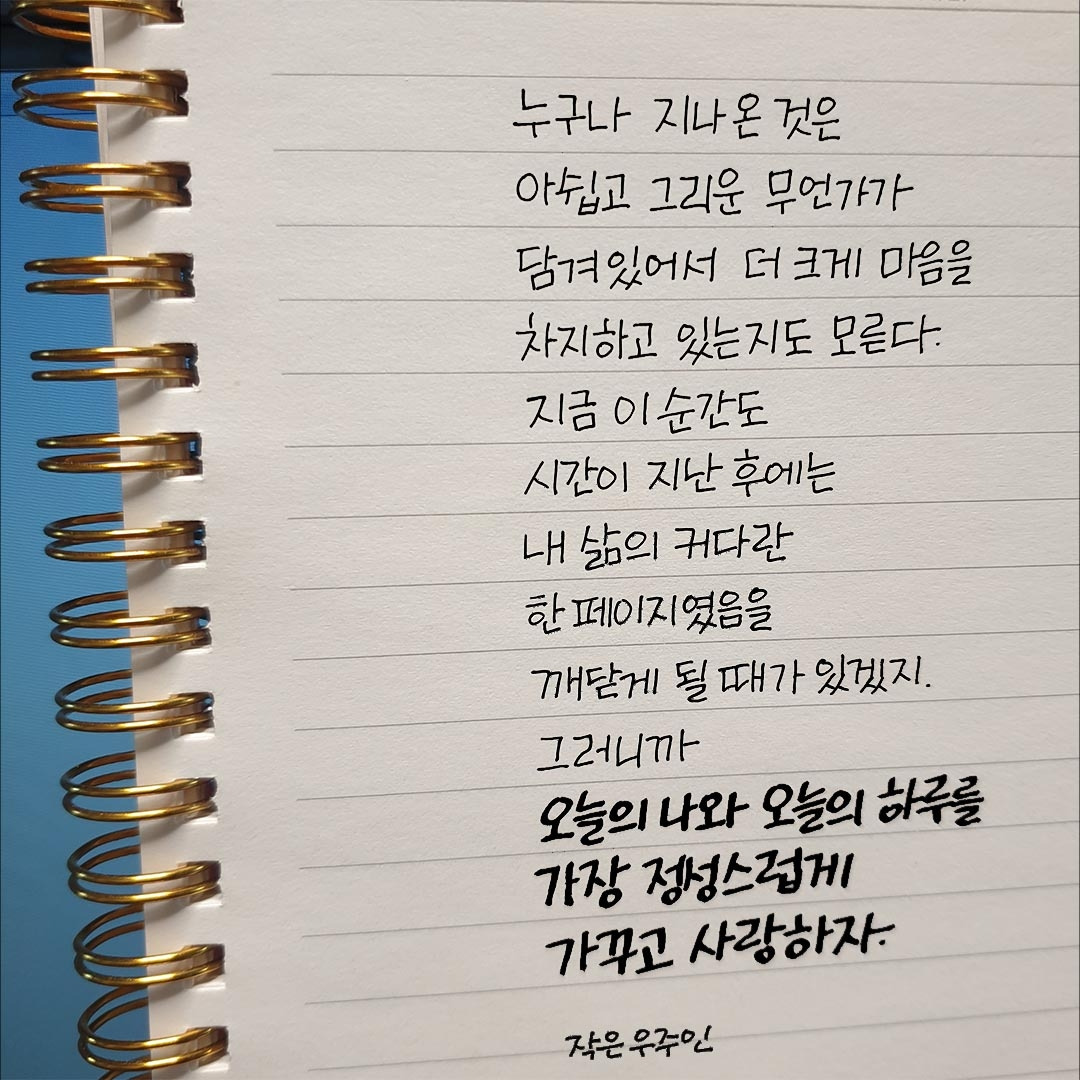 누구나 지나온 것은
아쉽고 그리운 무언가가
담겨있어서 더 크게 마음을
차지하고 있는지도 모른다.
지금 이 순간도
시간이 지난 후에는
내 삶의 커다란
한 페이지였음을
깨닫게 될 때가 있겠지.
그러니까
오늘의 나와 오늘의 하루를
가장 정성스럽게
가꾸고 사랑하자.
작은우주인